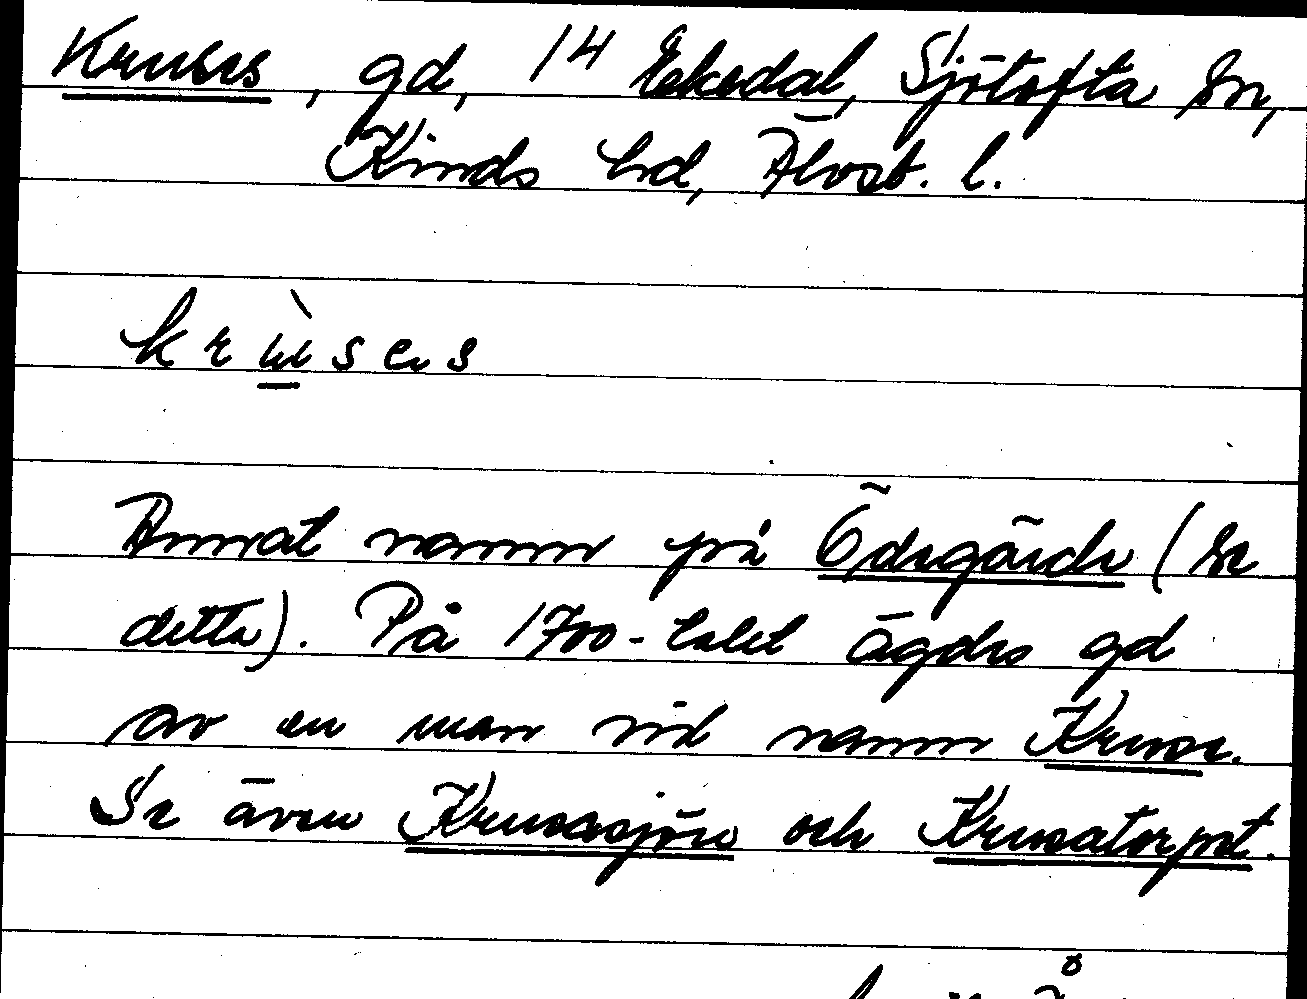 Kruses, gd, 14 Ekedal, Sjötofta sn,
Kinds hd, Älvsb. l.
krùses
Annat namn på Ödegärde (se
detta). På 1700-talet ägdes gd
av en man vid namn Kruse.
Se även Krusasjön och Krusatorpet.